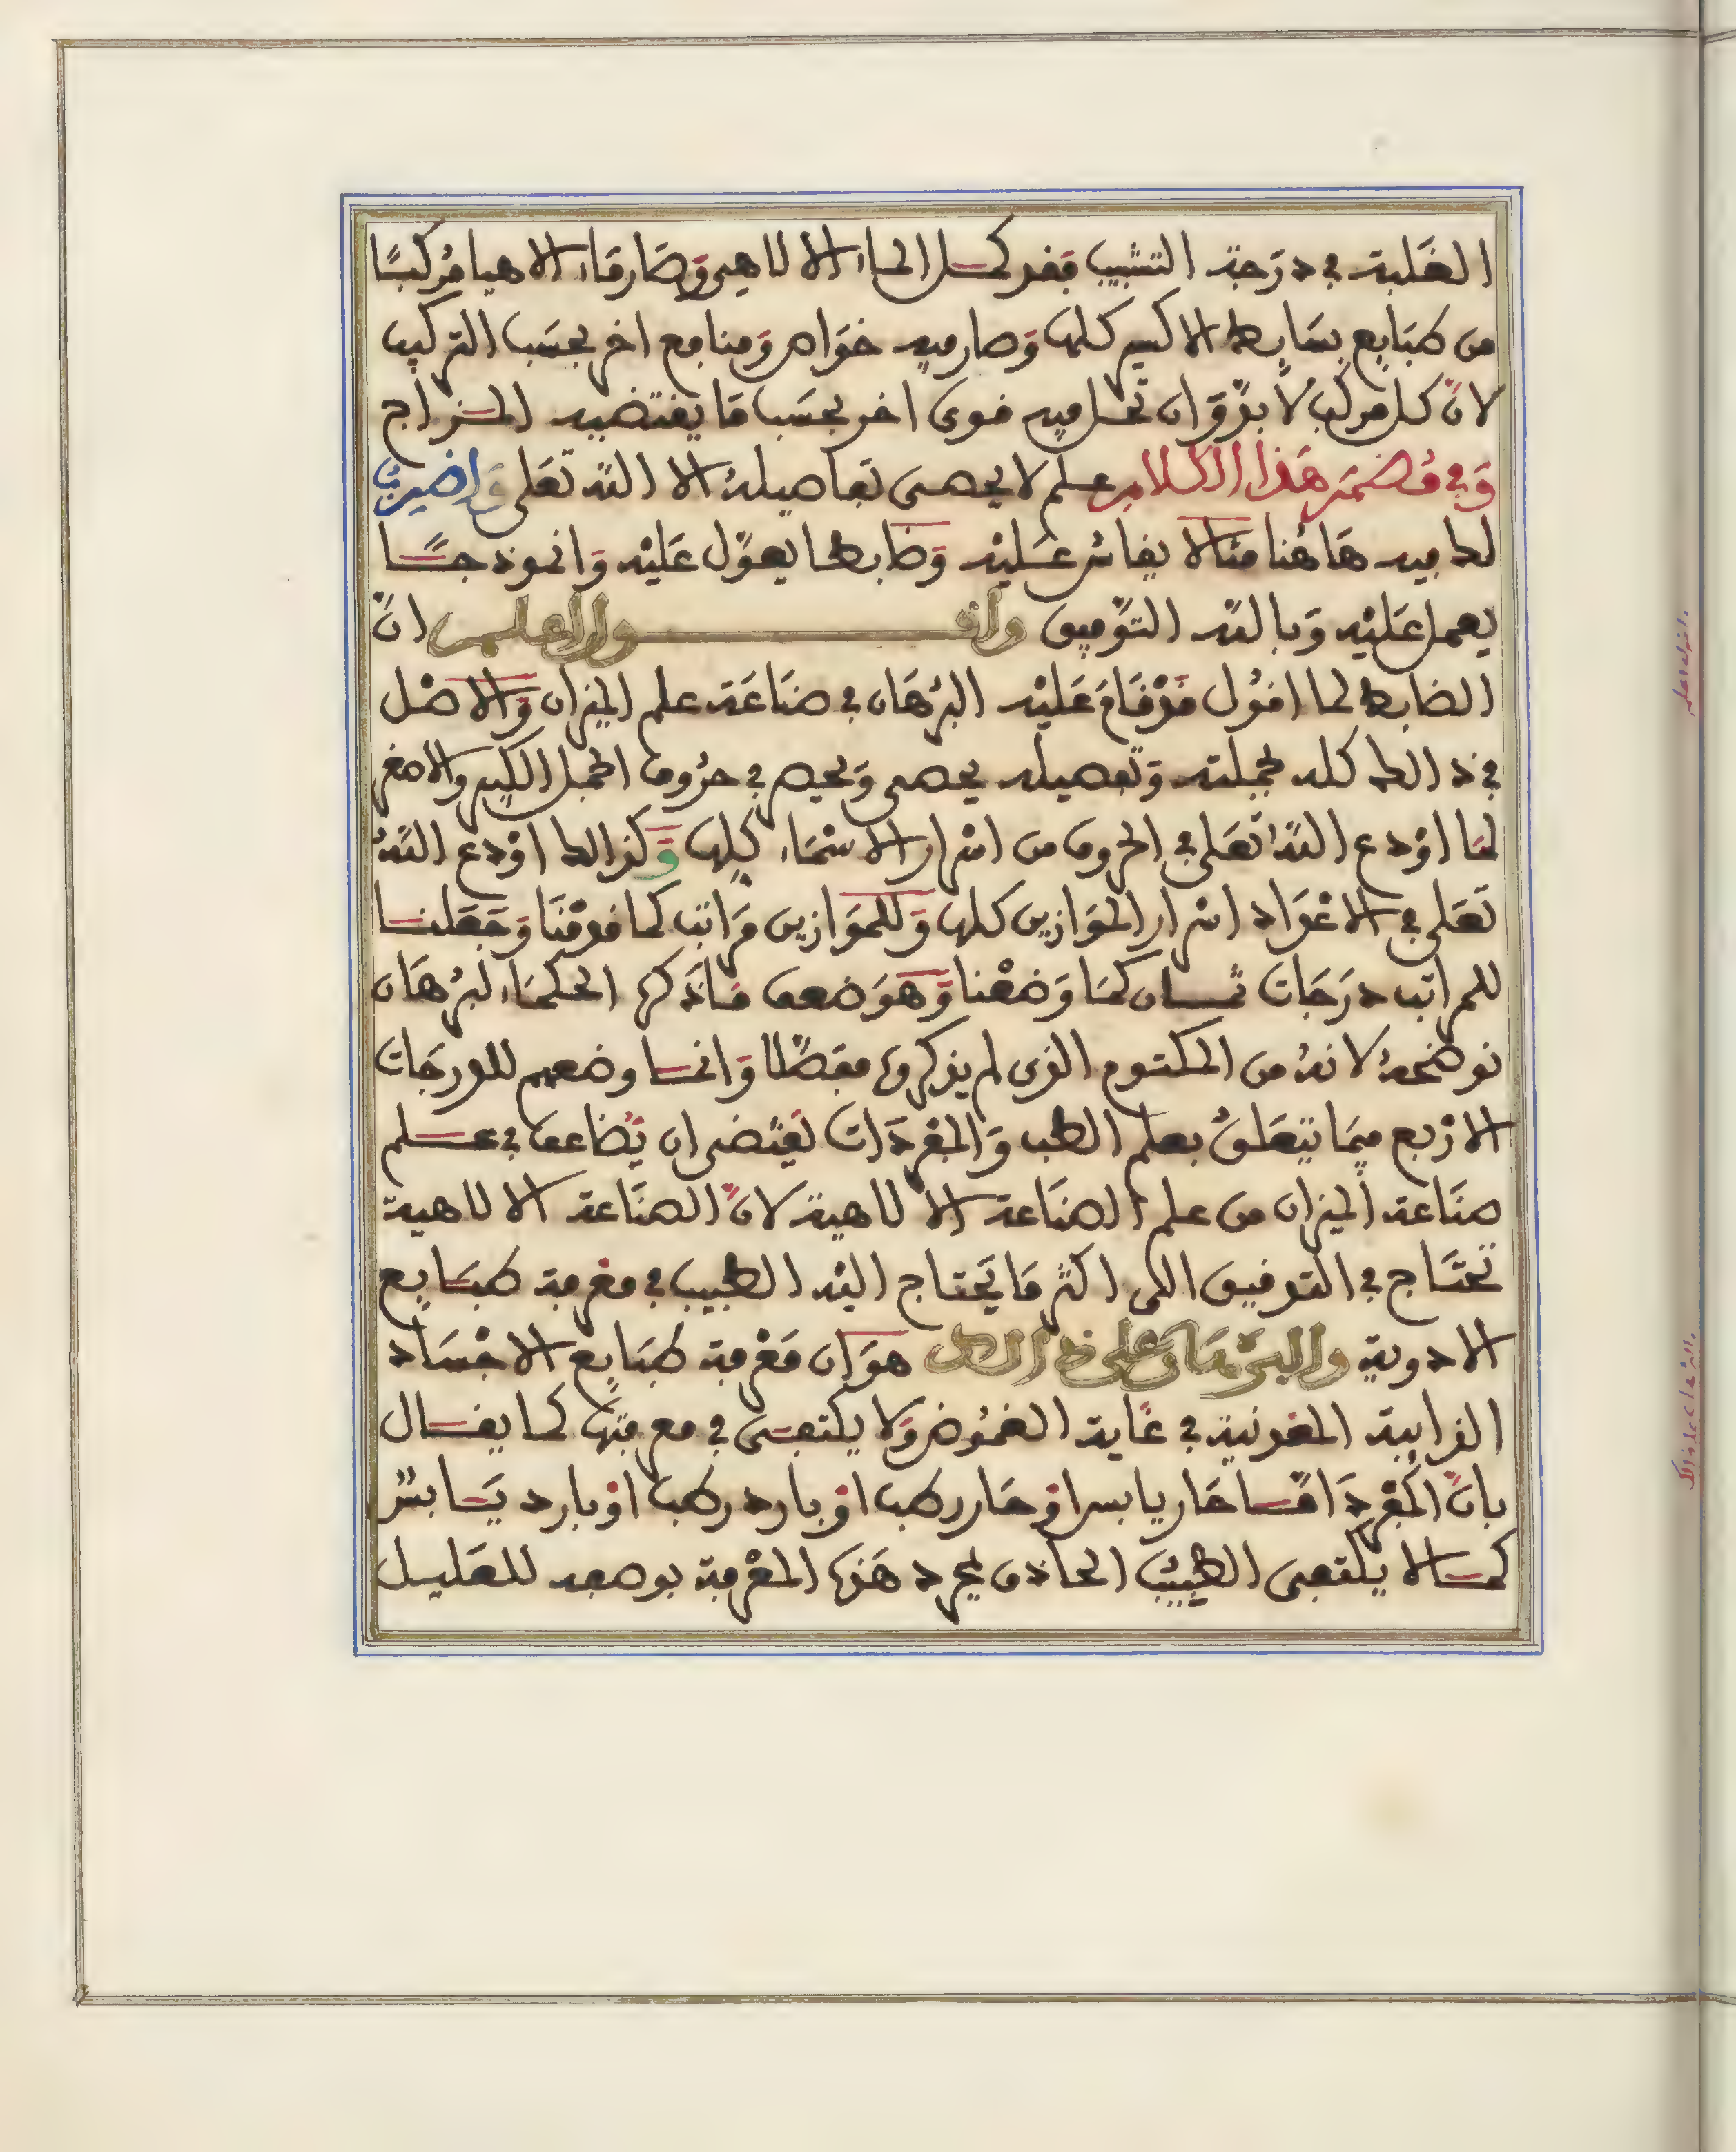 الغلبة في درجة التشبيب فقد كمل الماء الالاهي وصار ماء الاهيا مركبا
من طبايع بسايط الاكسير كلها وصار فيه خواص ومنافع اخر بحسب التركيب
لان كل مركب لا بد وان تحل فيه قوى اخر بحسب ما يقتضيه المزاج
وفي مضمر هذا الكلام علم لا يحصى تفاصيله الا الله تعلى واضرب
لك فيه هاهنا مثالا يقاس عليه وضابطا يعول عليه وانموذجا
يعمل عليه وبالله التوفيق واقول اعلم ان
الضابط لما اقول قد قام عليه البرهان في صناعة علم الميزان والاصل
في ذالك كله بجملته وتفصيله يحصى ويحصر في حروف الجمل الكبير والاصغر
لما اودع الله تعلى في الحروف من اسرار الاسماء كلها وكذالك اودع الله
تعلى في الاعداد اسرار الموازين كلها وللموازين مراتب كما قدمنا وجعلنا
للمراتب درجات ثمان كما وضعنا وهو ضعف ما ذكره الحكماء لبرهان
نوضحه لانه من المكتوم الذي لم يذكروه مفصلا وانما وضعهم للدرجات
الاربع فيما يتعلق بعلم الطب والمفردات تقتضي ان يضاعف في علم
صناعة الميزان من علم الصناعة الالاهية لان الصناعة الالاهية
تحتاج في التدقيق الى اكثر ما يحتاج اليه الطبيب في معرفة طبايع
الادوية والبرهان على ذالك هو ان معرفة طبايع الاجساد
الذايبة المعدنية في غاية الغموض ولا يكتفى في معرفتها كما يقال
بان المفرد اما حار يابس او حار رطب او بارد رطب او بارد يابس
كما لا يكتفى الطبيب الحاذق بمجرد هذه المعرفة بوصفه للعليل
واقول اعلم
والبرهان على ذالك